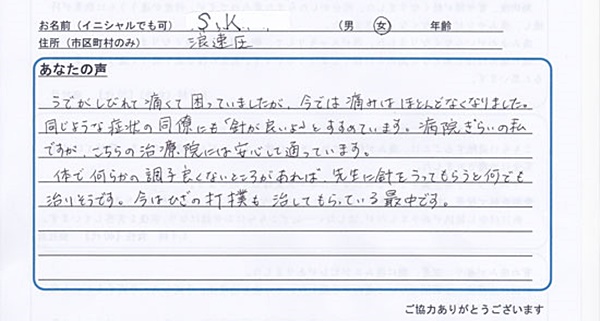 お名前(イニシャルでも可) S.K. (男 女) 年齢
住所(市区町村のみ) 浪速区
あなたの声
うでがしびれて痛くて困っていましたが、今では痛みはほとんどなくなりました。
同じような症状の同僚にも「針が良いよ」とすすめています。病院ぎらいの私
ですが、こちらの治療院には安心して通っています。
体で何らかの調子良くないところがあれば、先生に針をうってもらうと何でも
治りそうです。今はひざの打撲も治してもらっている最中です。
ご協力ありがとうございます